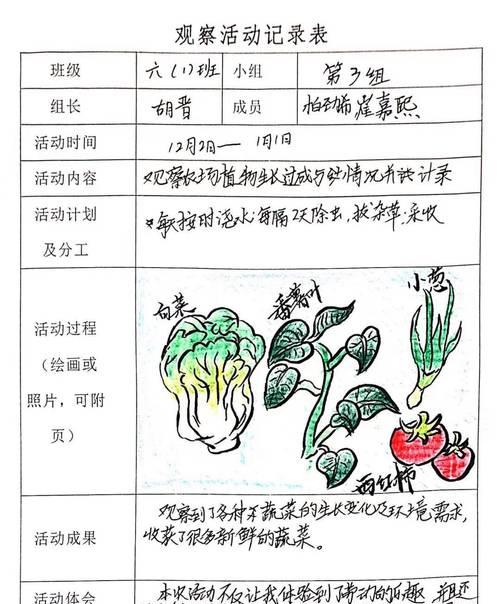 观察活动记录表
班级 六(1)班 小组 第3组
组长 胡晋 成员 崔嘉熙
活动时间 12月2日— 1月1日
活动内容 观察农场植物生长过成与 情况并 记录
活动计划
及分工
每天按时浇水,每隔2天除虫,拔杂草,采收
白菜 番薯叶 小葱
活动过程
(绘画或
照片,可附
页)
西红柿
活动成果
观察到了各种不蔬菜的生长变化及环境需求,
收获了很多新鲜的蔬菜。
活动体会 本次活动不仅让我体验到了劳动的乐趣,并且还